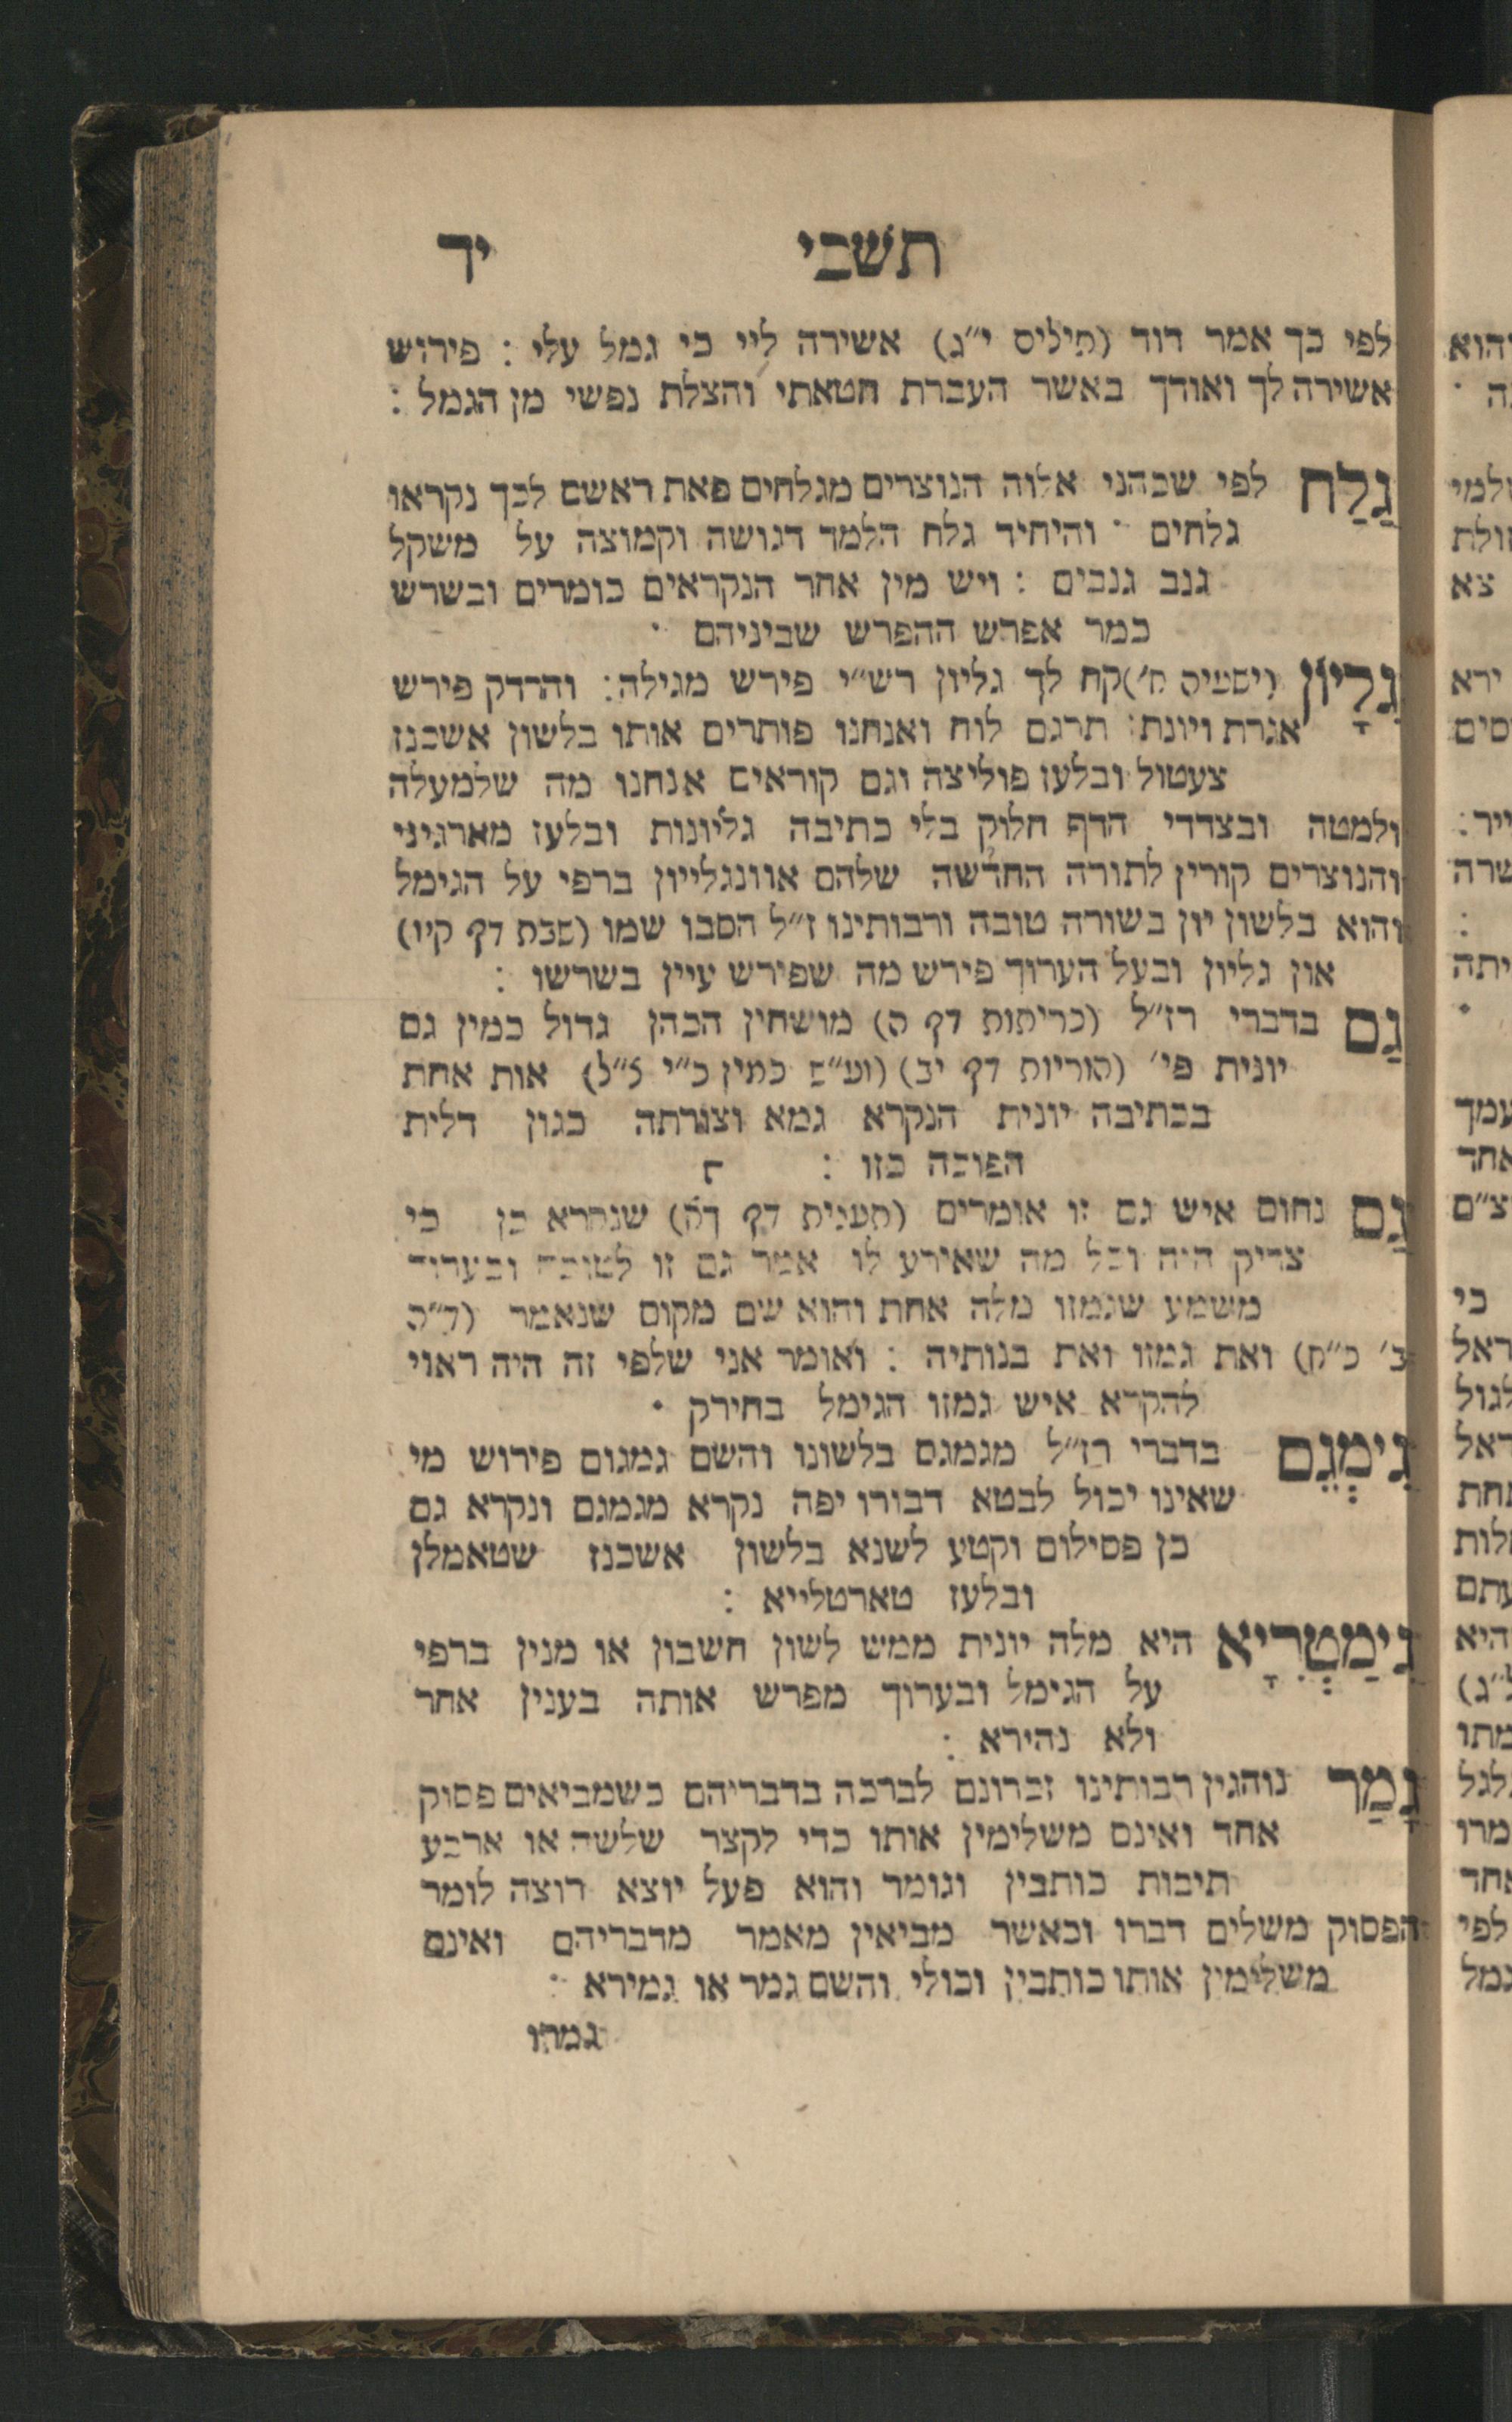 תשבי יד
לפי כך אמר דוד (תילים י״ג) אשירה ליי כי גמל עלי : פירוש
אשירה לך ואודך באשר העברת חטאתי והצלת נפשי מן הגמל :
גַלַח לפי שכהני אלוה הנוצרים מגלחים פאת ראשם לכך נקראו
גלחים · והיחיד גלח הלמד דגושה וקמוצה על משקל
גנב גנבים : ויש מין אחר הנקראים כומרים ובשרש
כמר אפרש ההפרש שביניהם ·
גִלָיוֹן (ישעיה ח׳) קח לך גליון רש״י פירש מגילה: והרדק פירש
אגרת ויונת: תרגם לוח ואנחנו פותרים אותו בלשון אשכנז
צעטול ובלעז פוליצה וגם קוראים אנחנו מה שלמעלה
ולמטה ובצדדי הדף חלוק בלי כתיבה גליונות ובלעז מארגיני
והנוצרים קורין לתורה החדשה שלהם אוונגלייון ברפי על הגימל
והוא בלשון יון בשורה טובה ורבותינו ז״ל הסבו שמו (שבת דף קיו)
און גליון ובעל הערוך פירש מה שפירש עיין בשרשו :
גַם בדברי רז״ל (כריתות דף ה) מושחין הכהן גדול כמין גם
יונית פי׳ (הוריות דף יב) (וע״ש כמין כ״י צ״ל) אות אחת
בכתיבה יונית הנקרא גמא וצורתה כגון דלית
הפוכה כזו :
גַם נחום איש גם זו אומרים (תענית דף) שנקרא כן כי
צדיק היה וכל מה שאירע לו אמר גם זו לטובה ובערוך
משמע שגמזו מלה אחת והוא שם מקום שנאמר (ד״ה
ב׳ כ״ח) ואת גמזו ואת בנותיה : ואומר אני שלפי זה היה ראוי
להקרא איש גמזו הגימל בחירק ·
גִימְגֵם בדברי רז״ל מגמגם בלשונו והשם גמגום פירוש מי
שאינו יכול לבטא דבורו יפה נקרא מגמגם ונקרא גם
כן פסילום וקטע לשנא בלשון אשכנז שטאמלן
ובלעז טארטלייא :
גִימַטְרִיָא היא מלה יונית ממש לשון חשבון או מנין ברפי
על הגימל ובערוך מפרש אותה בענין אחר
ולא נהירא :
גָמַר נוהגין רבותינו זכרונם לברכה בדבריהם כשמביאים פסוק
אחד ואינם משלימין אותו כדי לקצר שלשה או ארבע
תיבות כותבין וגומר והוא פעל יוצא רוצה לומר
הפסוק משלים דברו וכאשר מביאין מאמר מדבריהם ואינם
משלימין אותו כותבין וכולי והשם גמר או גמירא :
גמרו